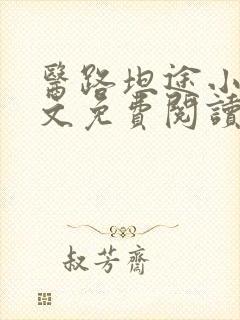 醫路坦途小
文免費閱讀
叔芳齋